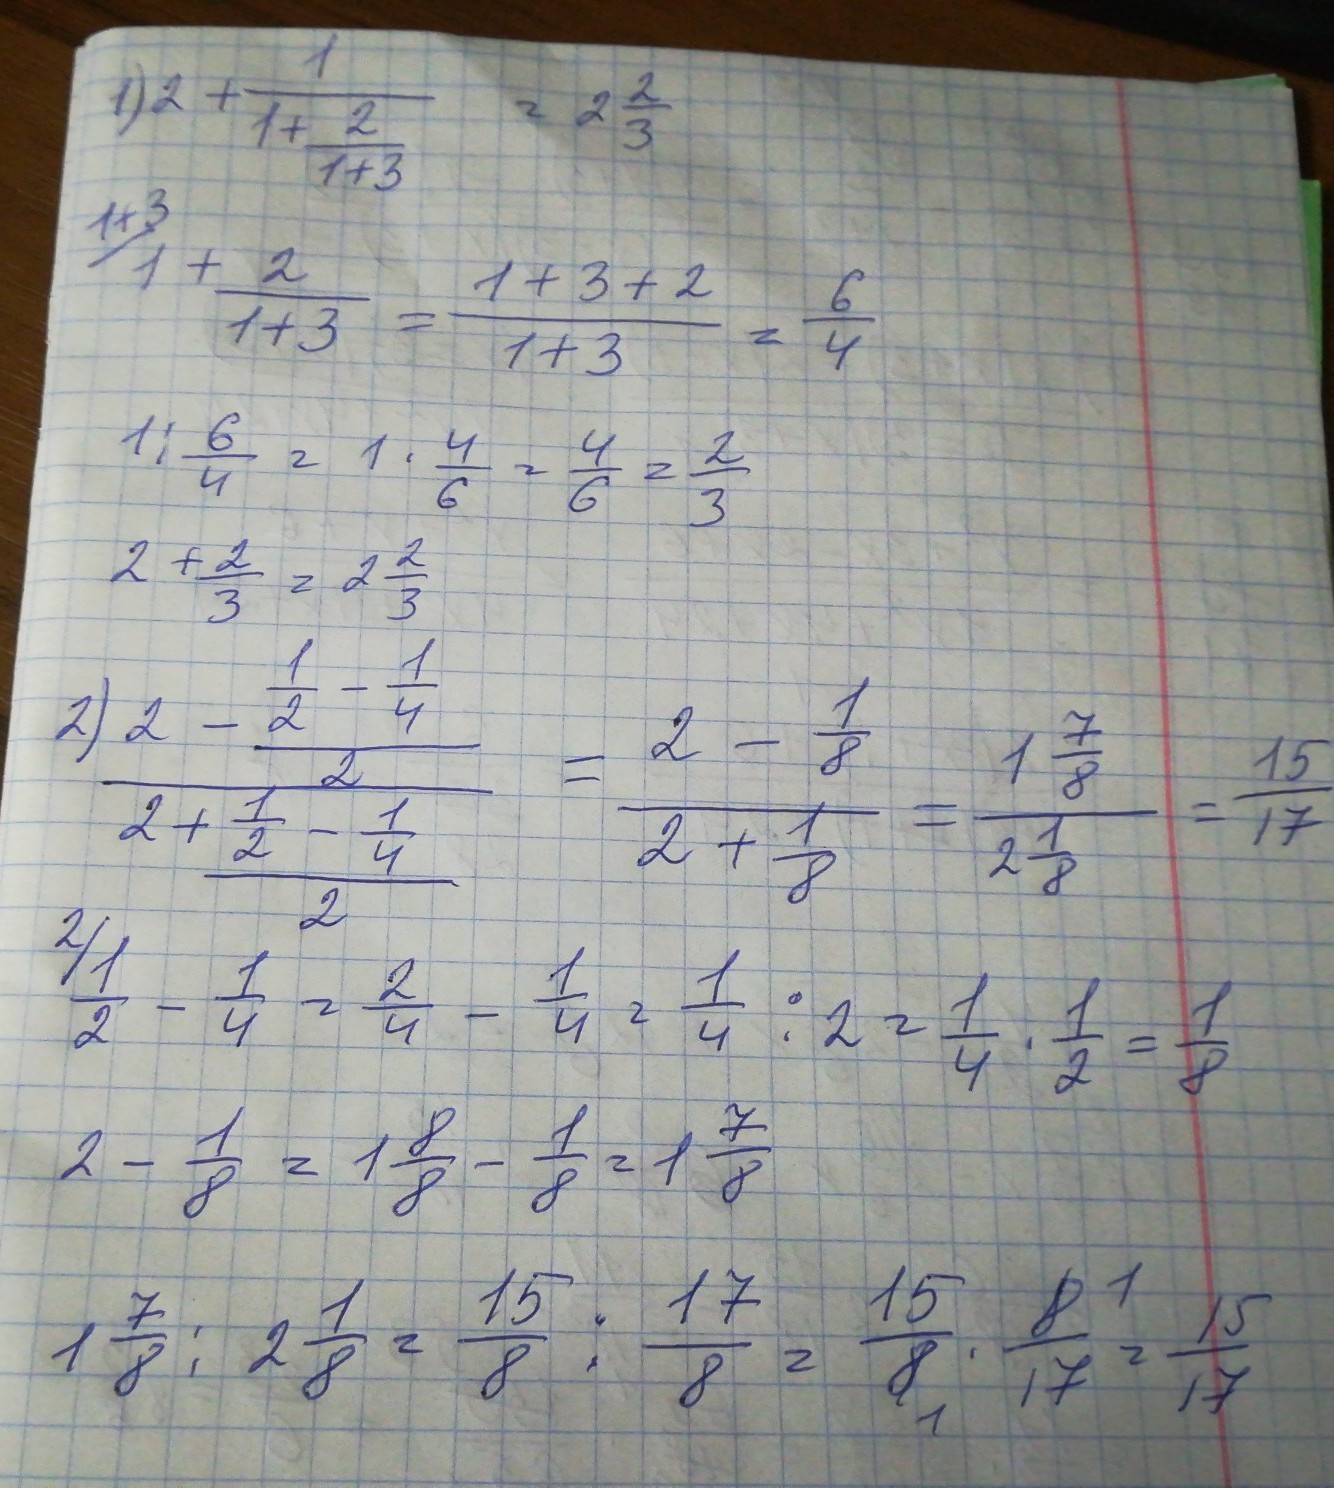 1) 2 + 1/(1 + 2/(1+3)) = 2 2/3
1+3/ 1 + 2/(1+3) = (1+3+2)/(1+3) = 6/4
1 : 6/4 = 1 · 4/6 = 4/6 = 2/3
2 + 2/3 = 2 2/3
2) (2 - (1/2 - 1/4)/2)/(2 + (1/2 - 1/4)/2) = (2 - 1/8)/(2 + 1/8) = (1 7/8)/(2 1/8) = 15/17
2/ 1/2 - 1/4 = 2/4 - 1/4 = 1/4 : 2 = 1/4 · 1/2 = 1/8
2 - 1/8 = 1 8/8 - 1/8 = 1 7/8
1 7/8 : 2 1/8 = 15/8 : 17/8 = 15/8 1 · 8 1/17 = 15/17